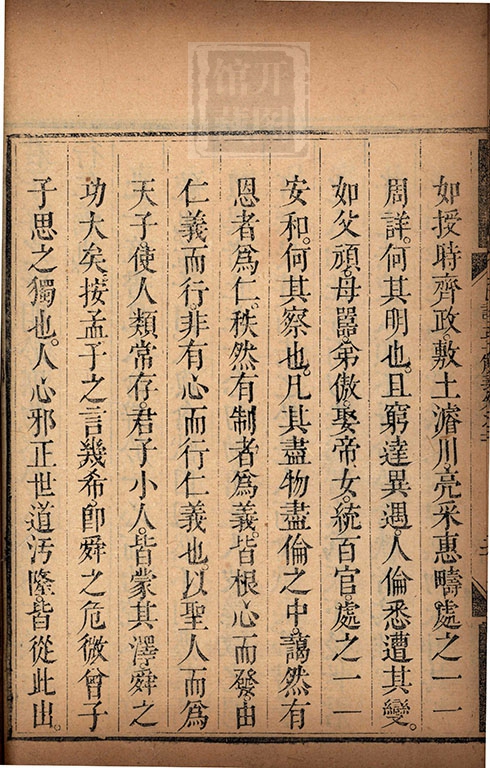 如授時齊政敷土濬川亮采惠疇處之一一
周詳何其明也且窮達異遇人倫悉遭其變
如父頑母嚚弟傲娶帝女統百官處之一一
安和何其察也凡其盡物盡倫之中藹然有
恩者爲仁秩然有制者爲義皆根心而發由
仁義而行非有心而行仁義也以聖人而爲
天子使人類常存君子小人皆蒙其澤舜之
功大矣按孟子之言幾希卽舜之危微曾子
子思之獨也人心邪正世道汚隆皆從此出